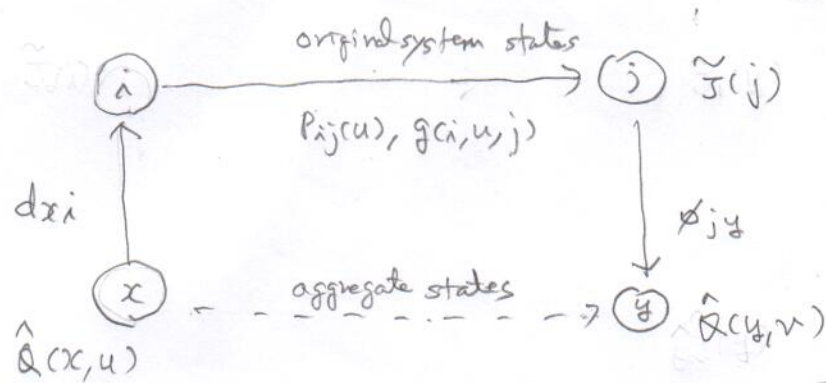 original system states
i
j
J̃(j)
Pij(u), g(i,u,j)
dxi
ϕjy
x
aggregate states
y
Q̂(x,u)
Q̂(y,v)